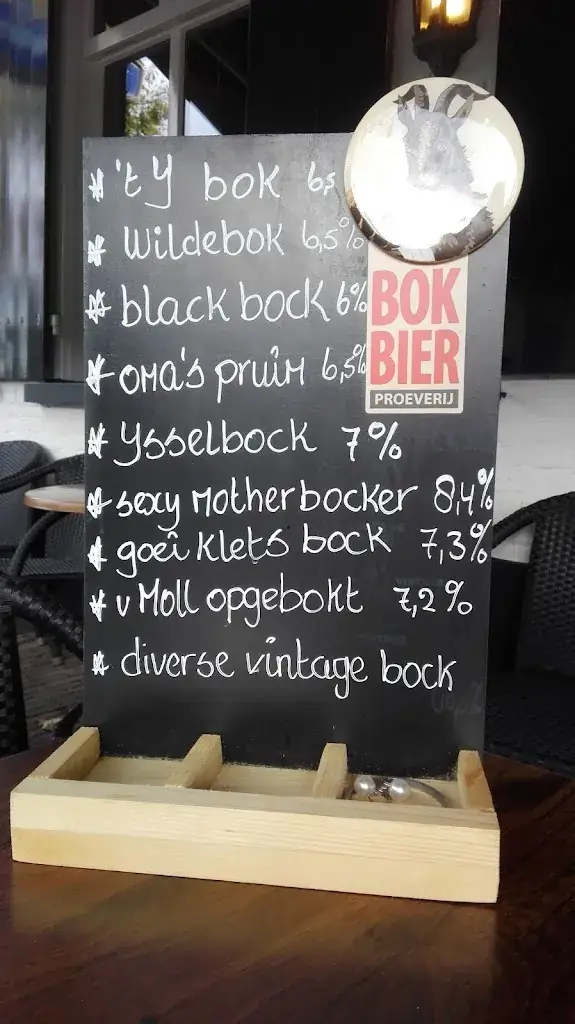 * 't Y bok 6,5
* Wildebok 6,5%
* black bock 6%
* OMA'S PRUIM 6,5%
* Ysselbock 7%
* sexy Motherbocker 8,4%
* goei klets bock 7,3%
* v Moll opgebokt 7,2%
* diverse vintage bock
BOK
BIER
PROEVERIJ